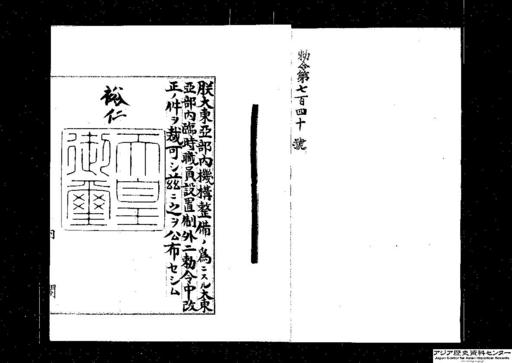 勅令第七百四十號
朕大東亞部內機構整備ノ爲ニスル大東
亞部內臨時職員設置制外二勅令中改
正ノ件ヲ裁可シ茲ニ之ヲ公布セシム
裕仁
天皇御璽
內閣
アジア歴史資料センター
Japan Center for Asian Historical Records